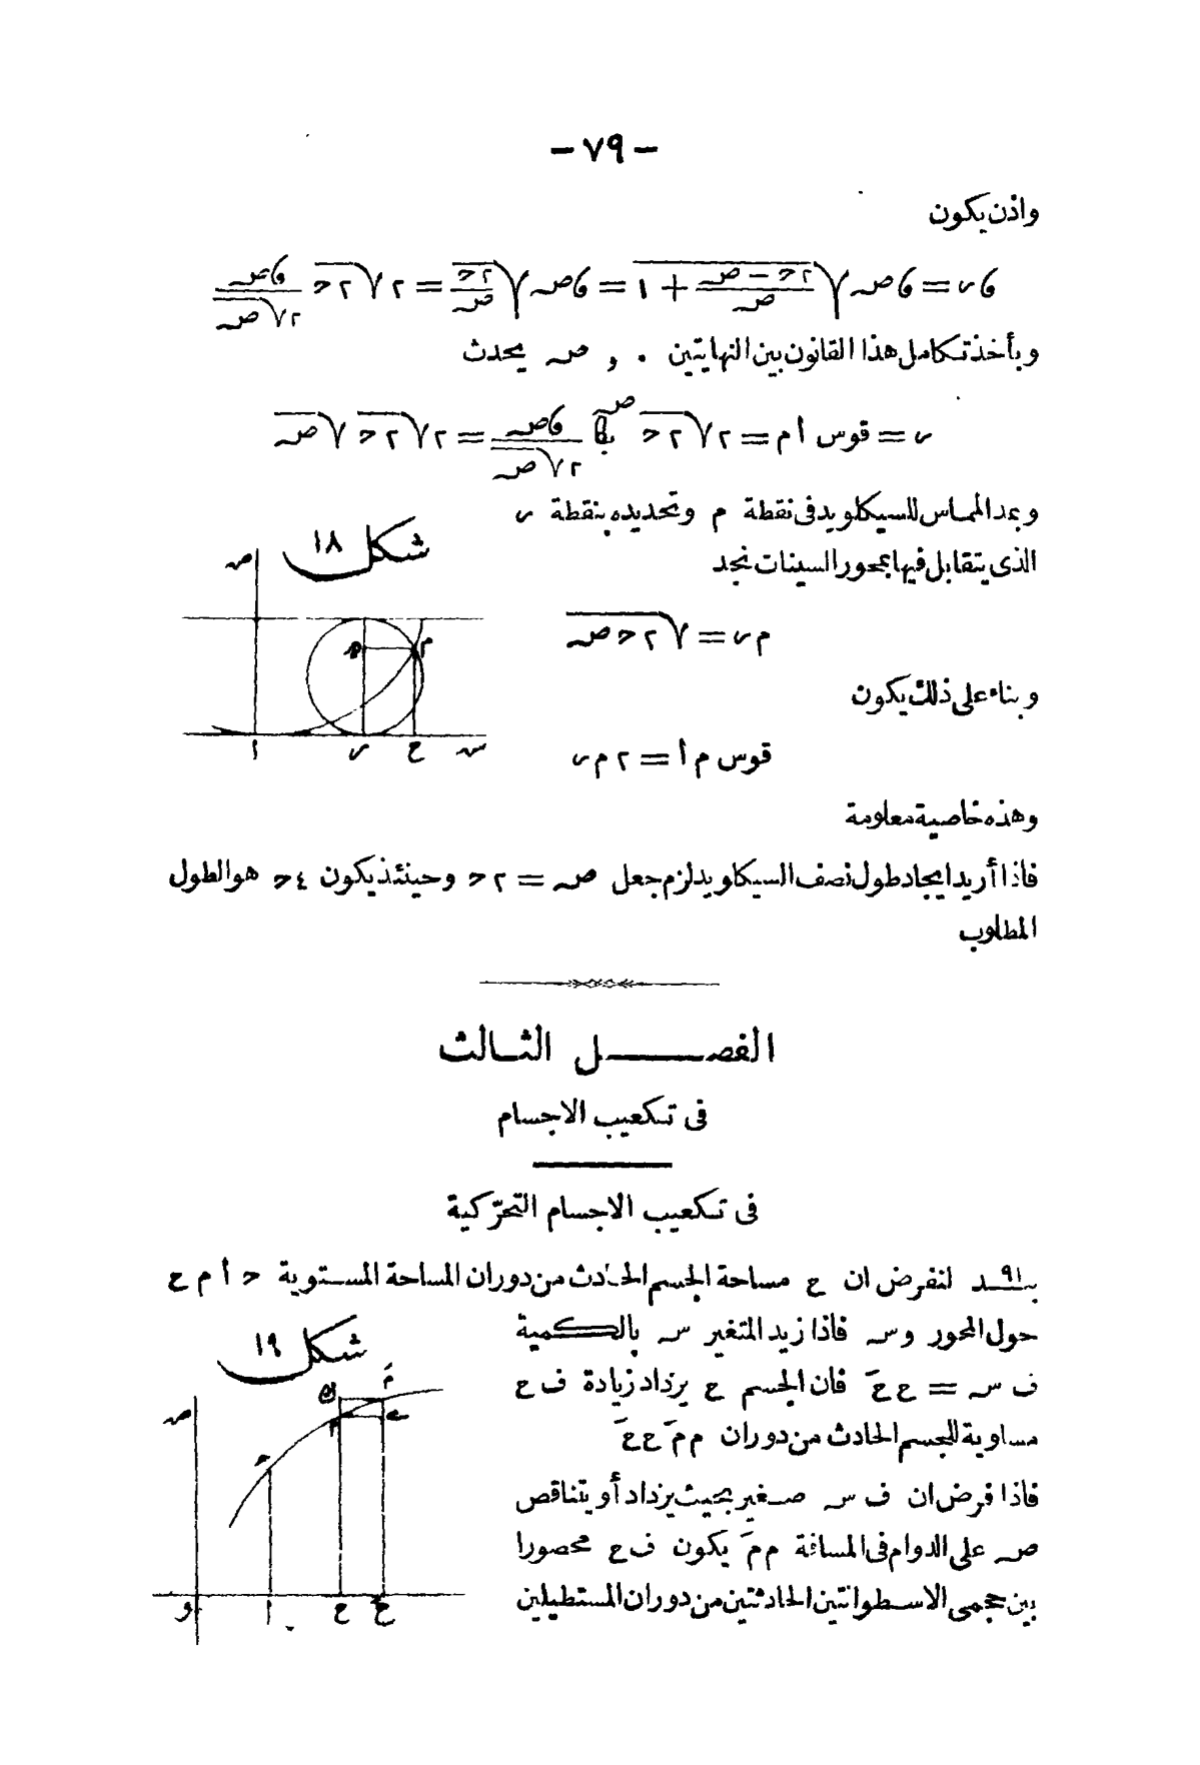 - ٧٩ -
واذن يكون
ﻭم = ﻭص √(٢ح - ص / ص + ١) = ﻭص √(٢ح / ص) = ٢ √٢ح ﻭص / ٢√ص
وبأخذ تكامل هذا القانون بين النهايتين ٠ , ص يحدث
م = قوس ا م = ٢ √٢ح ﻭص / ٢√ص = ٢ √٢ح √ص
وبمد المماس للسيكلويد فى نقطة م وتحديده بنقطة ر
الذى يتقابل فيها بمحور السينات نجد
شكل ١٨
ص
م
ا
ر
ع
س
م ر = √٢ح ص
وبناء على ذلك يكون
قوس م ا = ٢ م ر
وهذه خاصية معلومة
فاذا أريد ايجاد طول نصف السيكلويد لزم جعل ص = ٢ح وحينئذ يكون ٤ح هو الطول
المطلوب
الفصل الثالث
فى تكعيب الاجسام
فى تكعيب الاجسام التحرّكية
بند ٩١ لنفرض ان ع مساحة الجسم الحادث من دوران المساحة المستوية ح أ م ع
حول المحور وس فاذا زيد المتغير س بالكمية
ف س = ع عَ فان الجسم ع يزداد زيادة ف ع
مساوية للجسم الحادث من دوران م مَ ع عَ
فاذا فرض ان ف س صغير بحيث يزداد أو يتناقص
ص على الدوام فى المسافة م مَ يكون ف ع محصورا
بين حجمى الاسطوانتين الحادثتين من دوران المستطيلين
شكل ١٩
ص
ح
م
مَ
و
ا
ع
عَ